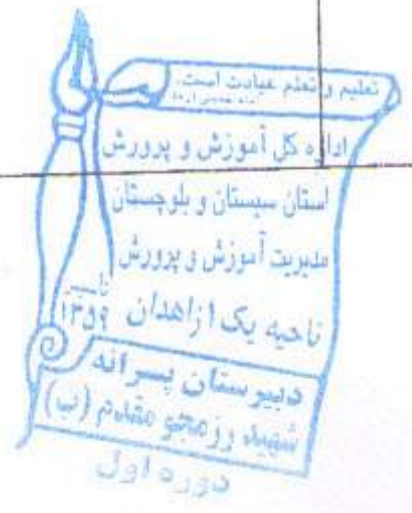 تعلیم و تعلم عبادت است.
اداره کل آموزش و پرورش
استان سیستان و بلوچستان
مدیریت آموزش و پرورش
ناحیه یک زاهدان
تاـــ
۱۳۵۹
دبیرستان پسرانه
شهید رزمجو مقدم (ب)
دوره اول